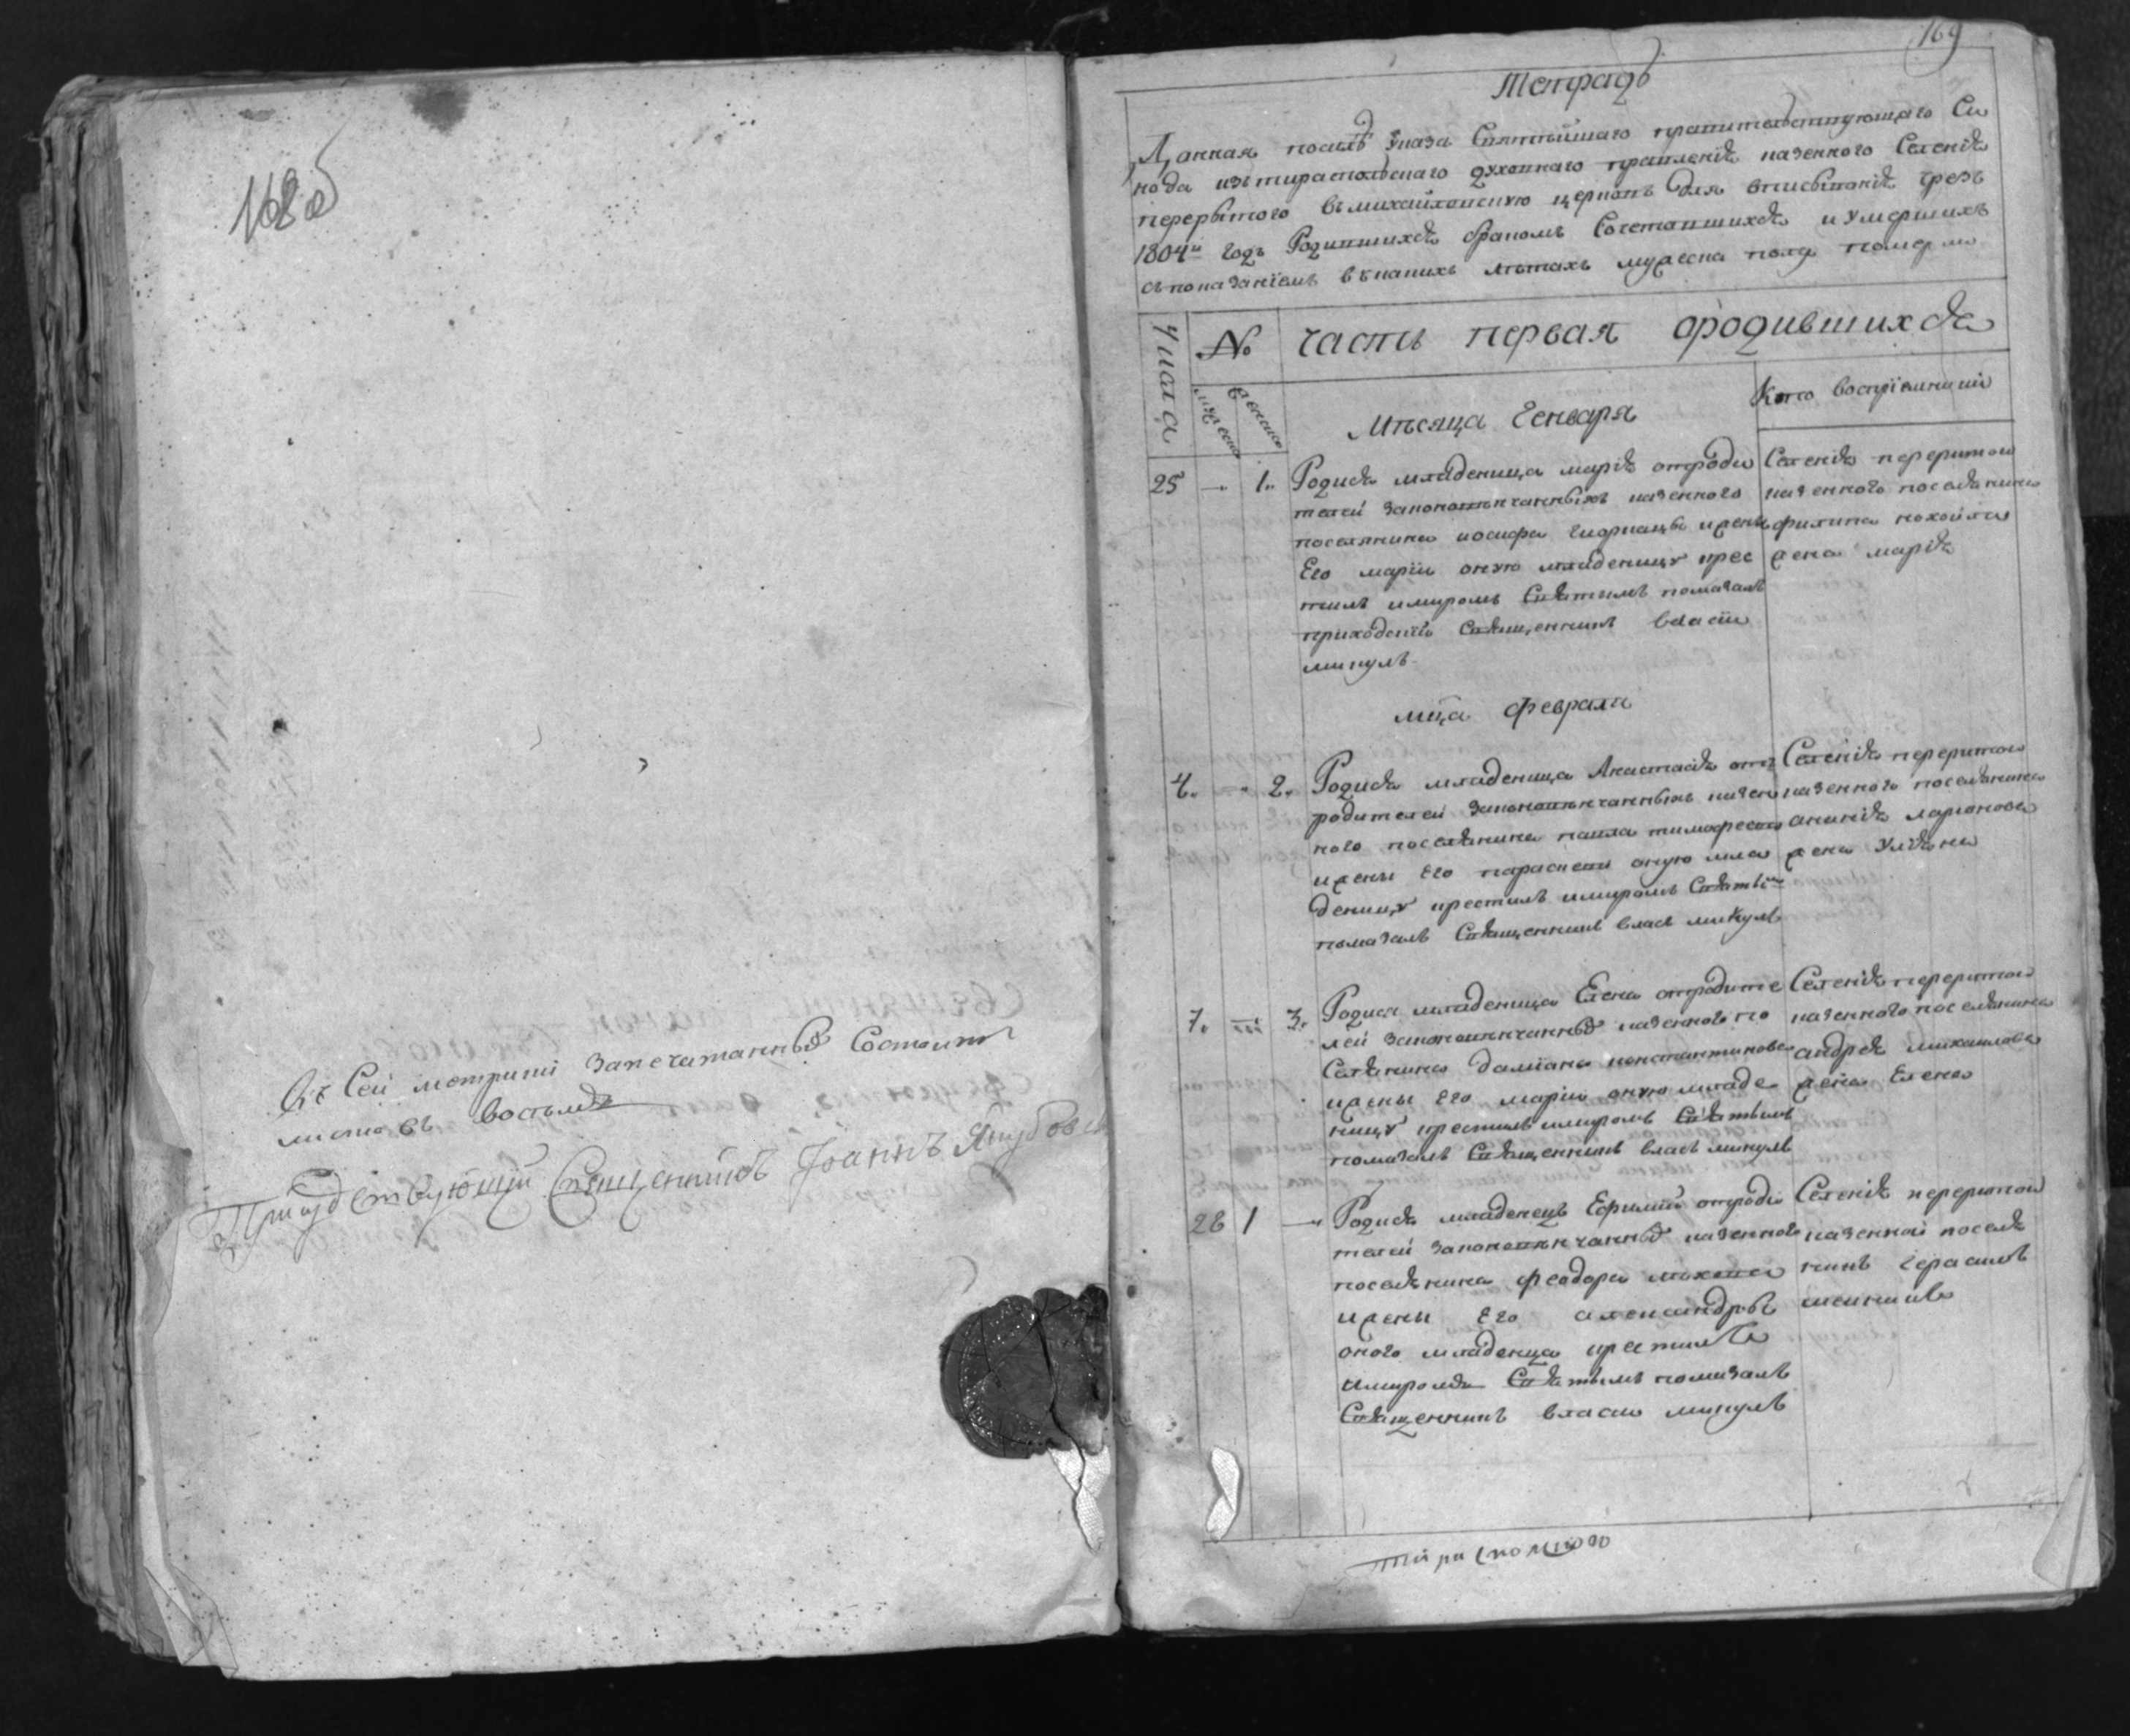 168 об
Въ Сей метрики запечатанныя Состоитъ
листовъ восемъ
Присудствующий Священникъ Іоаннъ Якубовс
169
Тетрадь
Данная посилѣ Указа Святѣйшаго правительствующаго Си
нода изътираспольскаго духовнаго правленія казенного Селенія
перерытого въмихайловскую церковъ для вписыванія чрезъ
1804й годъ Родившихся бракомъ Сочетавшихся и умершихъ
съпоказаніемъ вкакихъ лѣтахъ мужеска пола
Числа
№
часть первая ородившихся
мужеска
женска
Мѣсяца Генваря
Кто восприемники
25 — 1. Родися младеница марія отроди
телей законовѣнчанныхъ казенного
поселянина иосифа ижены
Его маріи оную младеницу крес
тилъ имиромъ Святымъ помазалъ
приходскій Священникъ власій
микулъ
Селенія переритои
казенного поселянина
филипа
жена марія
мца февраля
4. — 2. Родися младеница Анастасія отъ
родителей законовѣнчанныхъ казен
ного поселянина павла тимофеева
ижены Его параскеви оную мла
деницу крестилъ имиромъ Святы
помазалъ Священникъ власъ микулъ
Селенія переритои
казенного поселянина
ананія ларионова
жена Уліяна
7. — 3. Родися младеница Елена отродите
лей законовѣнчанныя казенного по
Селянина даміана константинова
ижены Его маріи оную младе
ницу крестилъ имиромъ Святымъ
помазалъ Священникъ власъ микулъ
Селенія переритои
казенного поселянина
андрея михаилова
жена Елена
28 1 — Родися младенецъ Ефимий отроди
телей законовѣнчанныя казенного
поселянина феодора
ижены Его александры
оного младенца крестилъ
имиромъ Святымъ помазалъ
Священникъ власій микулъ
Селенія переритои
казенной поселя
нинъ герасимъ